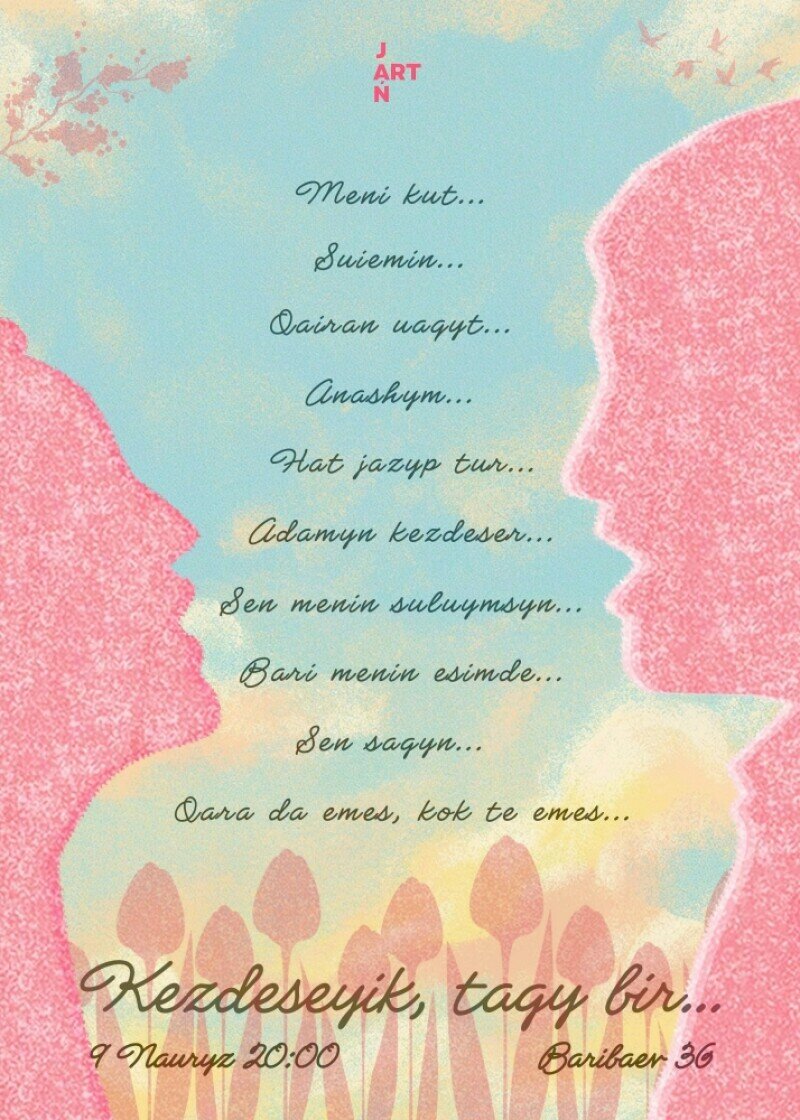 J
ART
Ń
Meni kut...
Suiemin...
Qairan uaqyt...
Anashym...
Hat jazyp tur...
Adamyn kezdeser...
Sen menin suluymsyn...
Bari menin esimde...
Sen sagyn...
Qara da emes, kok te emes...
Kezdeseyik, tagy bir...
9 Nauryz 20:00 Baribaev 36